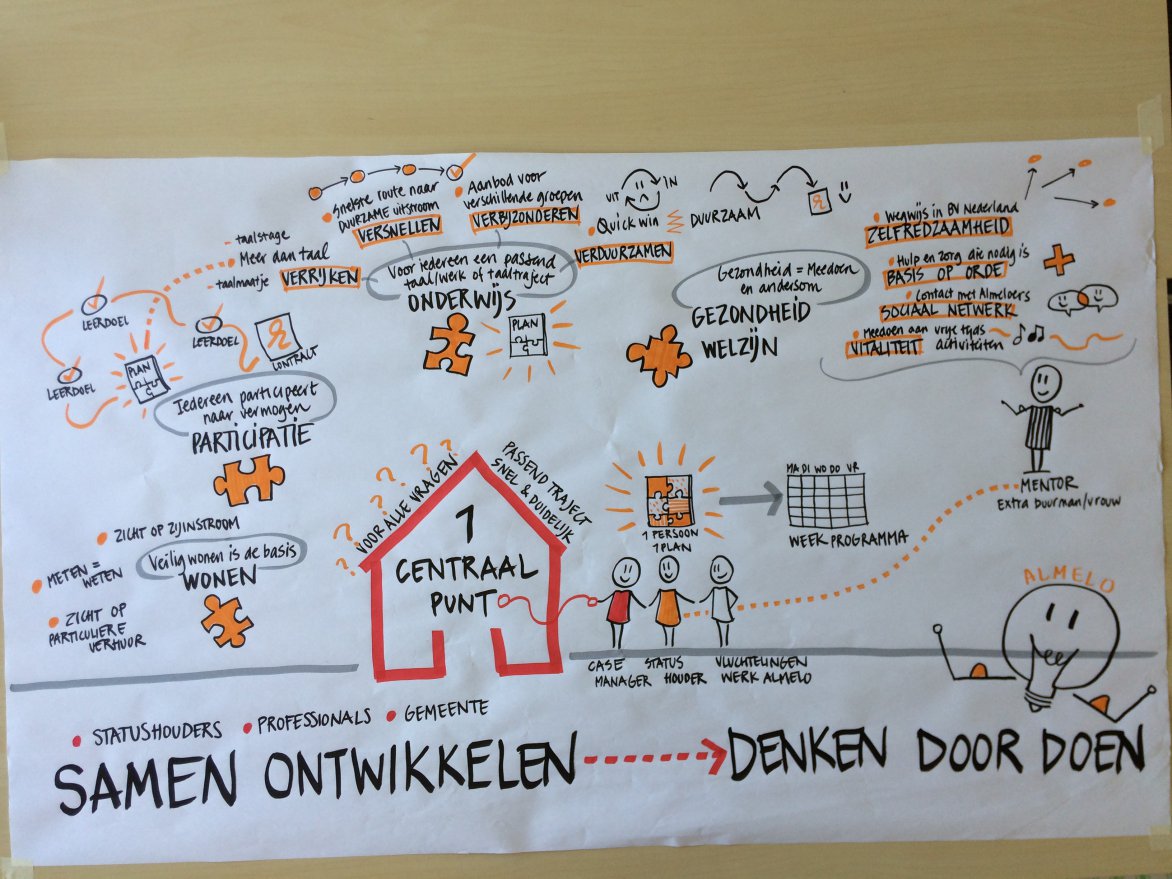 Snelste route naar
DUURZAME uitstroom
VERSNELLEN
Aanbod voor
verschillende groepen
VERBIJZONDEREN
UIT
IN
Quick win
DUURZAAM
VERDUURZAMEN
- taalstage
Meer dan taal
- taalmaatje
VERRIJKEN
Voor iedereen een passend
taal/werk of taaltraject
ONDERWIJS
PLAN
Gezondheid = Meedoen
en andersom
GEZONDHEID
WELZIJN
Wegwijs in BV Nederland
ZELFREDZAAMHEID
Hulp en zorg die nodig is
BASIS OP ORDE
Contact met Almeloers
SOCIAAL NETWERK
Meedoen aan vrije tijds
VITALITEIT activiteiten
MENTOR
EXTRA Buurman/vrouw
LEERDOEL
LEERDOEL
LEERDOEL
PLAN
CONTRACT
Iedereen participeert
naar vermogen
PARTICIPATIE
ZICHT OP ZIJINSTROOM
METEN =
WETEN
Veilig wonen is de basis
WONEN
ZICHT OP
PARTICULIERE
VERHUUR
? ? ? ? ? ? ?
VOOR ALLE VRAGEN
PASSEND TRAJECT
SNEL & DUIDELIJK
1
CENTRAAL
PUNT
1 PERSOON
1 PLAN
MA DI WO DO VR
WEEK PROGRAMMA
CASE
MANAGER
STATUS
HOUDER
VLUCHTELINGEN
WERK ALMELO
ALMELO
STATUSHOUDERS
PROFESSIONALS
GEMEENTE
SAMEN ONTWIKKELEN
DENKEN DOOR DOEN